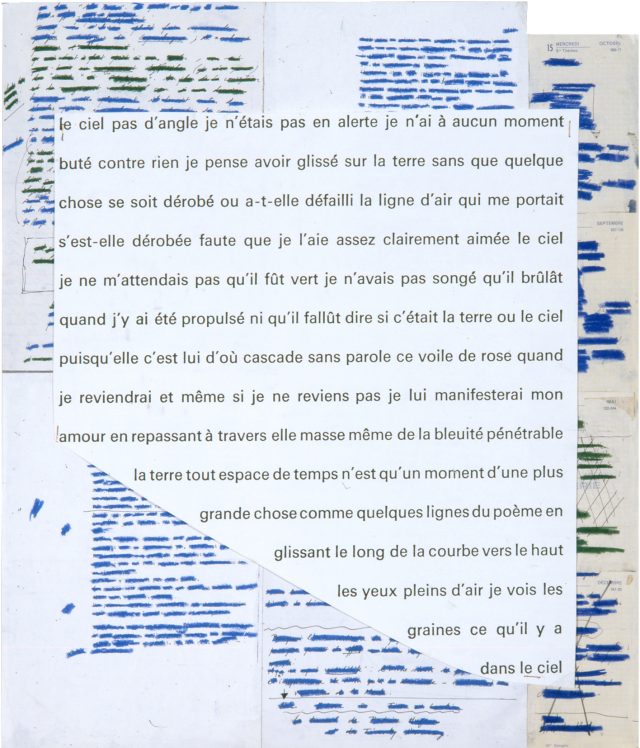 15 MERCREDI OCTOBRE
le ciel pas d'angle je n'étais pas en alerte je n'ai à aucun moment
buté contre rien je pense avoir glissé sur la terre sans que quelque
chose se soit dérobé ou a-t-elle défailli la ligne d'air qui me portait
s'est-elle dérobée faute que je l'aie assez clairement aimée le ciel
je ne m'attendais pas qu'il fût vert je n'avais pas songé qu'il brûlât
quand j'y ai été propulsé ni qu'il fallût dire si c'était la terre ou le ciel
puisqu'elle c'est lui d'où cascade sans parole ce voile de rose quand
je reviendrai et même si je ne reviens pas je lui manifesterai mon
amour en repassant à travers elle masse même de la bleuité pénétrable
la terre tout espace de temps n'est qu'un moment d'une plus
grande chose comme quelques lignes du poème en
glissant le long de la courbe vers le haut
les yeux pleins d'air je vois les
graines ce qu'il y a
dans le ciel
SEPTEMBRE
MAI
DÉCEMBRE